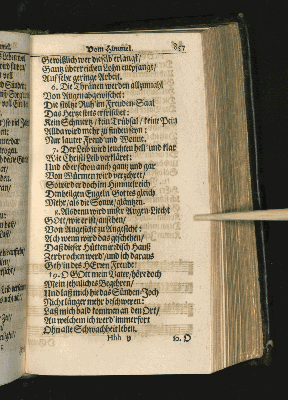 Vom Himmel. 857
Gewißlich wer dieselb erlangt/
Gantz überreichen Lohn empfängt/
Auf sehr geringe Arbeit.
6. Die Thränen werden allzumahl
Von Augen abgewischet:
Die stoltze Ruh im Freuden-Saal
Das Hertze stets erfrischet:
Kein Schmertz/ kein Trübsal/ keine Pein
Allda wird mehr zu finden seyn:
Nur lauter Freud und Wonne.
7. Der Leib wird leuchten hell und klar
Wie Christi Leib verkläret:
Und ob er schon auch gantz und gar
Von Würmern wird verzehret/
So wird er doch im Himmelreich
Den heiligen Engeln Gottes gleich
Mehr/ als die Sonne/ gläntzen.
8. Alsdenn wird unser Augen-Liecht
GOtt/ wie er ist/ ansehen/
Von Angesicht zu Angesicht:
Ach wenn wird das geschehen/
Daß dieser Hütten irdisch Hauß
Zerbrochen werd/ und ich daraus
Geh in des HErren Freude!
9. O GOtt mein Vater/ hör doch
Mein sehnliches Begehren/
Und laß mich hie das Sünden-Joch
Nicht länger mehr beschweren:
Laß mich bald kommen an den Ort/
An welchem ich werd immerfort
Ohn alle Schwachheit leben.
Hhh v 10. O